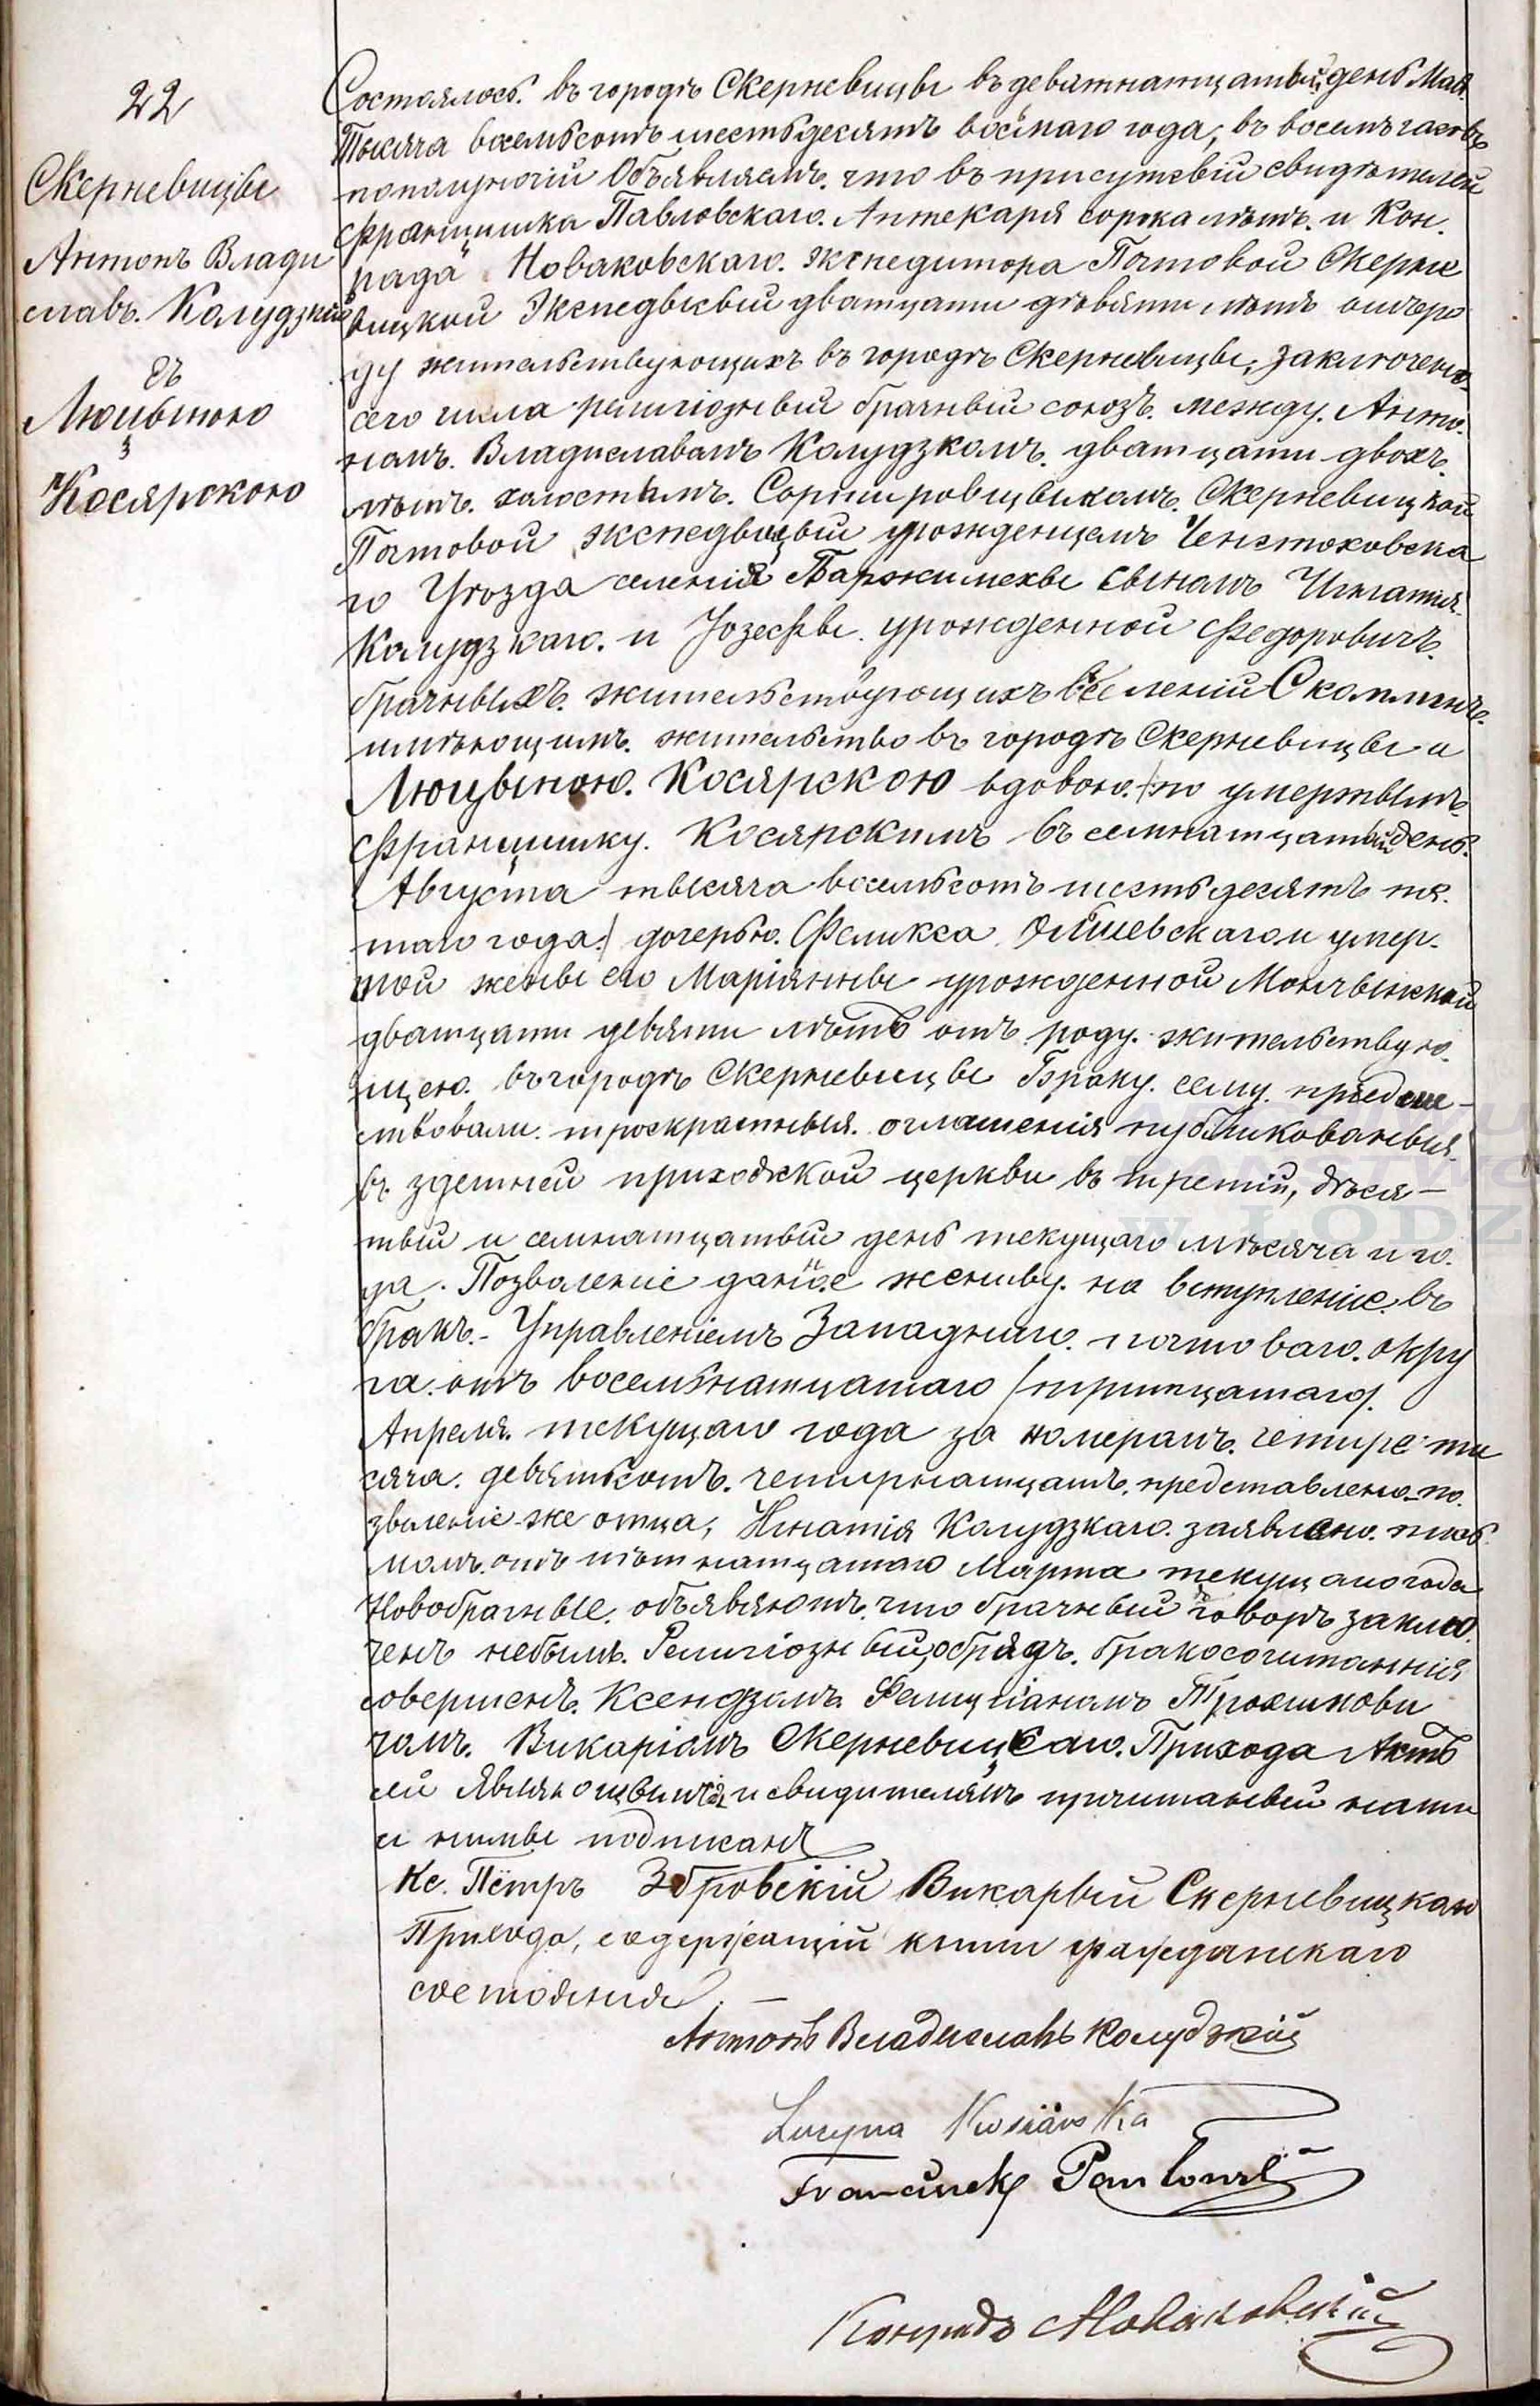 22
Скерневицы
Антонъ Влади
славъ. Калудзкий
съ
Люцыною
Косярскою
Состоялось. въ городѣ Скерневицы въ девятнатцатый день Мая.
Тысяча восемьсотъ шестьдесятъ восьмаго года, въ восемъ часовъ
пополуночій Объявляемъ. что въ присутсвіи свидѣтелей
Францишка Павловскаго. Аптекаря сорока лѣтъ. и Кон.
рада Новаковскаго. экспедитора Почтовой Скерне
вицкой Экспедыцыи дватцати дѣвяти лѣтъ отъ ро
ду жительствующихъ въ городѣ Скерневицы, заключено
сего числа религіозный брачный союзъ. между. Анто.
номъ. Владиславомъ Калудзкомъ. дватцати двохъ.
лѣтъ. холостымъ. Сортировщыкомъ. Скерневицкой
Почтовой экспедыцыи урожденцемъ Ченстоховска
го Уѣзда селенія Баржимехы сыномъ Игнатия.
Калудзкаго. и Юзефы. урожденной Федоровичъ.
брачныхъ. жительствующихъ въ селеній Скомлинъ.
имѣющимъ. жительство въ городѣ Скерневицы и
Люцыною. Косярскою вдовою. /по умершымъ
Францишку. Косярскимъ въ семнатцатый день.
Августа тысяча восемьсотъ шестьдесятъ пя.
таго года./ дочерью. Феликса Ольшевскаго и умер.
шой жены его Маріянны урожденной Мончынской
дватцати девяти лѣтъ отъ роду. жительствую.
щею. въ городѣ Скерневицы Браку. сему. предше
ствовали. троекратныя. оглашенія публикованыя.
въ здешней приходской церкви въ третій, дѣся—
тый и семнатцатый день текущаго мѣсяча и го.
да. Позволеніе данное жениху. на вступленіе. въ
бракъ.- Управленіемъ Западнаго. почтоваго. окру
га. отъ восемьнатцатаго /тритцатаго/.
Апреля. текущаго года за номеромъ. четире ти
сяча. девятьсотъ. четирнатцатъ. представлено. по.
зволеніе же отца, Игнатія Калудзкаго. заявлено. пись
момъ. отъ пѣтнатцатаго Марта текущаго года
Новобрачные. объявяютъ. что брачный говоръ заклю.
ченъ небылъ. Религіозный обрядъ. бракосочитанния
совершенъ. Ксендзомъ Фелициганомъ Трошинови
чомъ. Викаріомъ Скерневицкаго. Прихода Актъ
сей Являющымся и свидителямъ прочитаный нами
и нимы подписанъ
Кс. Пётръ Збровскій Викарый Скерневицкаго
Прихода, содержащій книги гражданскаго
состояния.—
Антонъ Владиславъ Калудзкій
Lucyna Kosiarska
Franciszek Pawlowski
Конрадъ Новаковскій